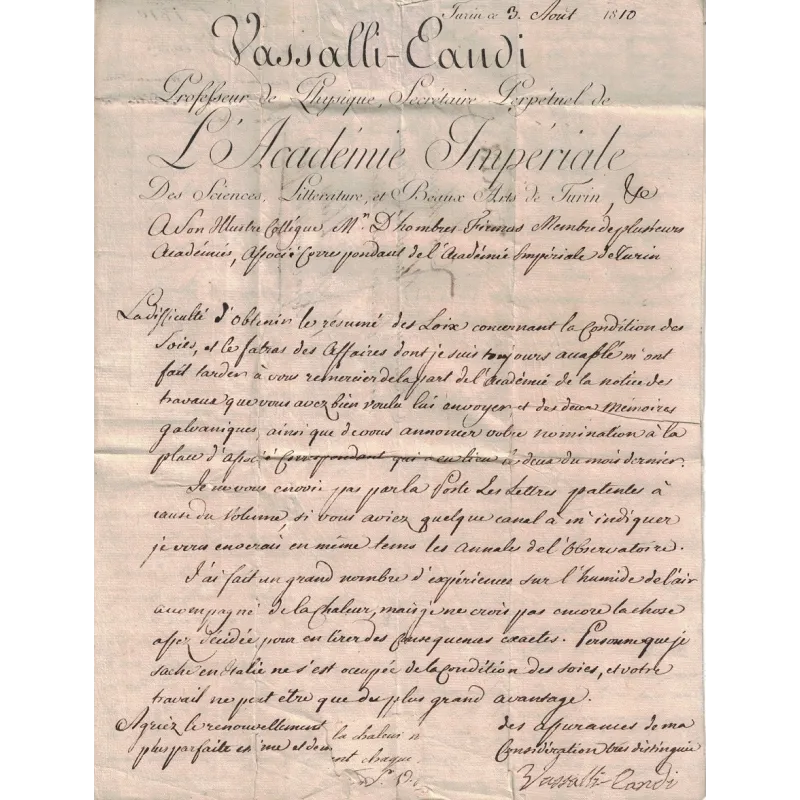 Turin ce 3. Aout 1810
Vassalli-Eandi
Professeur de Physique, Secrétaire Perpétuel de
L'Académie Impériale
Des Sciences, Litterature, et Beaux Arts de Turin, &c
A Son Illustre Collégue, Mr. D'hombres Firmas Membre de plusieurs
Académies, Associé Correspondant de l'Académie Impériale de Turin
La difficulté d'obtenir le résumé des Loix concernant la Condition des
Soies, et le fatras des affaires dont je suis toujours accablé m'ont
fait tarder à vous remercier de la part de l'Académie de la notice des
travaux que vous avez bien voulu lui envoyer et des deux Mémoires
galvaniques, ainsi que de vous annoncer votre nomination à la
place d'associé Correspondant qui a eu lieu le deux du mois dernier.
Je ne vous envoie pas par la Poste Les Lettres patentes à
cause du Volume, si vous aviez quelque canal à m'indiquer
je vous enverais en même tems les Annales de l'Observatoire.
J'ai fait un grand nombre d'expériences sur l'humide de l'air
accompagné de la Chaleur, mais je ne crois pas encore la chose
assez décidée pour en tirer des Consequences exactes. Personne que je
sache en Italie ne s'est occupée de la Condition des soies, et votre
travail ne peut être que du plus grand avantage.
Agréez le renouvellement des assurances de ma
plus parfaite estime et de ma Considération très distinguée
la chaleur
ent chaque
Vassalli-Eandi